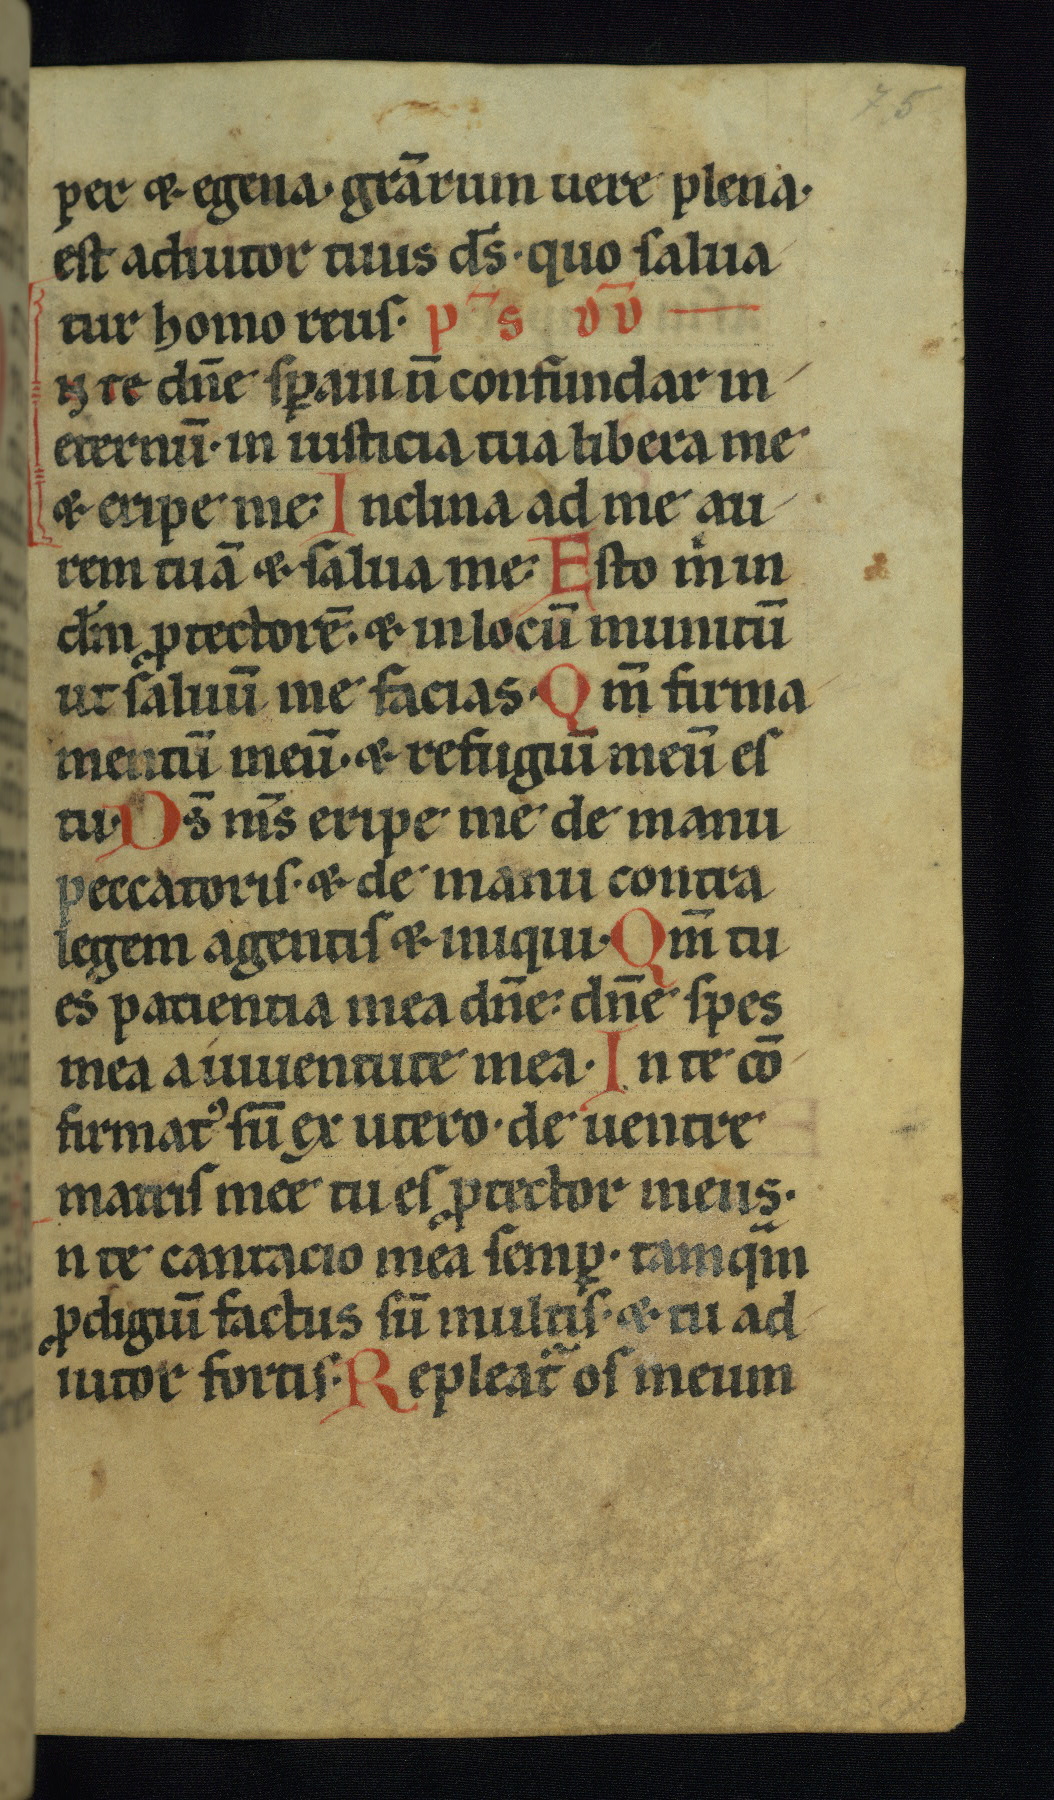 75
per & egena· grārum uere plena·
est adiutor tuus ds̄· quo salua
tur homo reus· p̄s v̄v̄
In te dn̄e sꝑaui n̄ confundar in
eternū· in iusticia tua libera me
& eripe me: Inclina ad me au
rem tuā & salua me: Esto m̄ in
dm̄ ꝓtectorē· & in locū munitū
ut saluū me facias· Qm̄ firma
mentū meū· & refugiū meū es
tu· Ds̄ m̄s eripe me de manu
peccatoris· & de manu contra
legem agentis & iniqui· Qm̄ tu
es patientia mea dn̄e: dn̄e spes
mea a iuuentute mea· In te cō
firmatꝰ sū ex utero· de uentre
matris mee tu es ꝓtector meus·
n te cantacio mea semꝑ· tamqm̄
ꝓdigiū factus sū multis· & tu ad
iutor fortis· Repleat̄ os meum